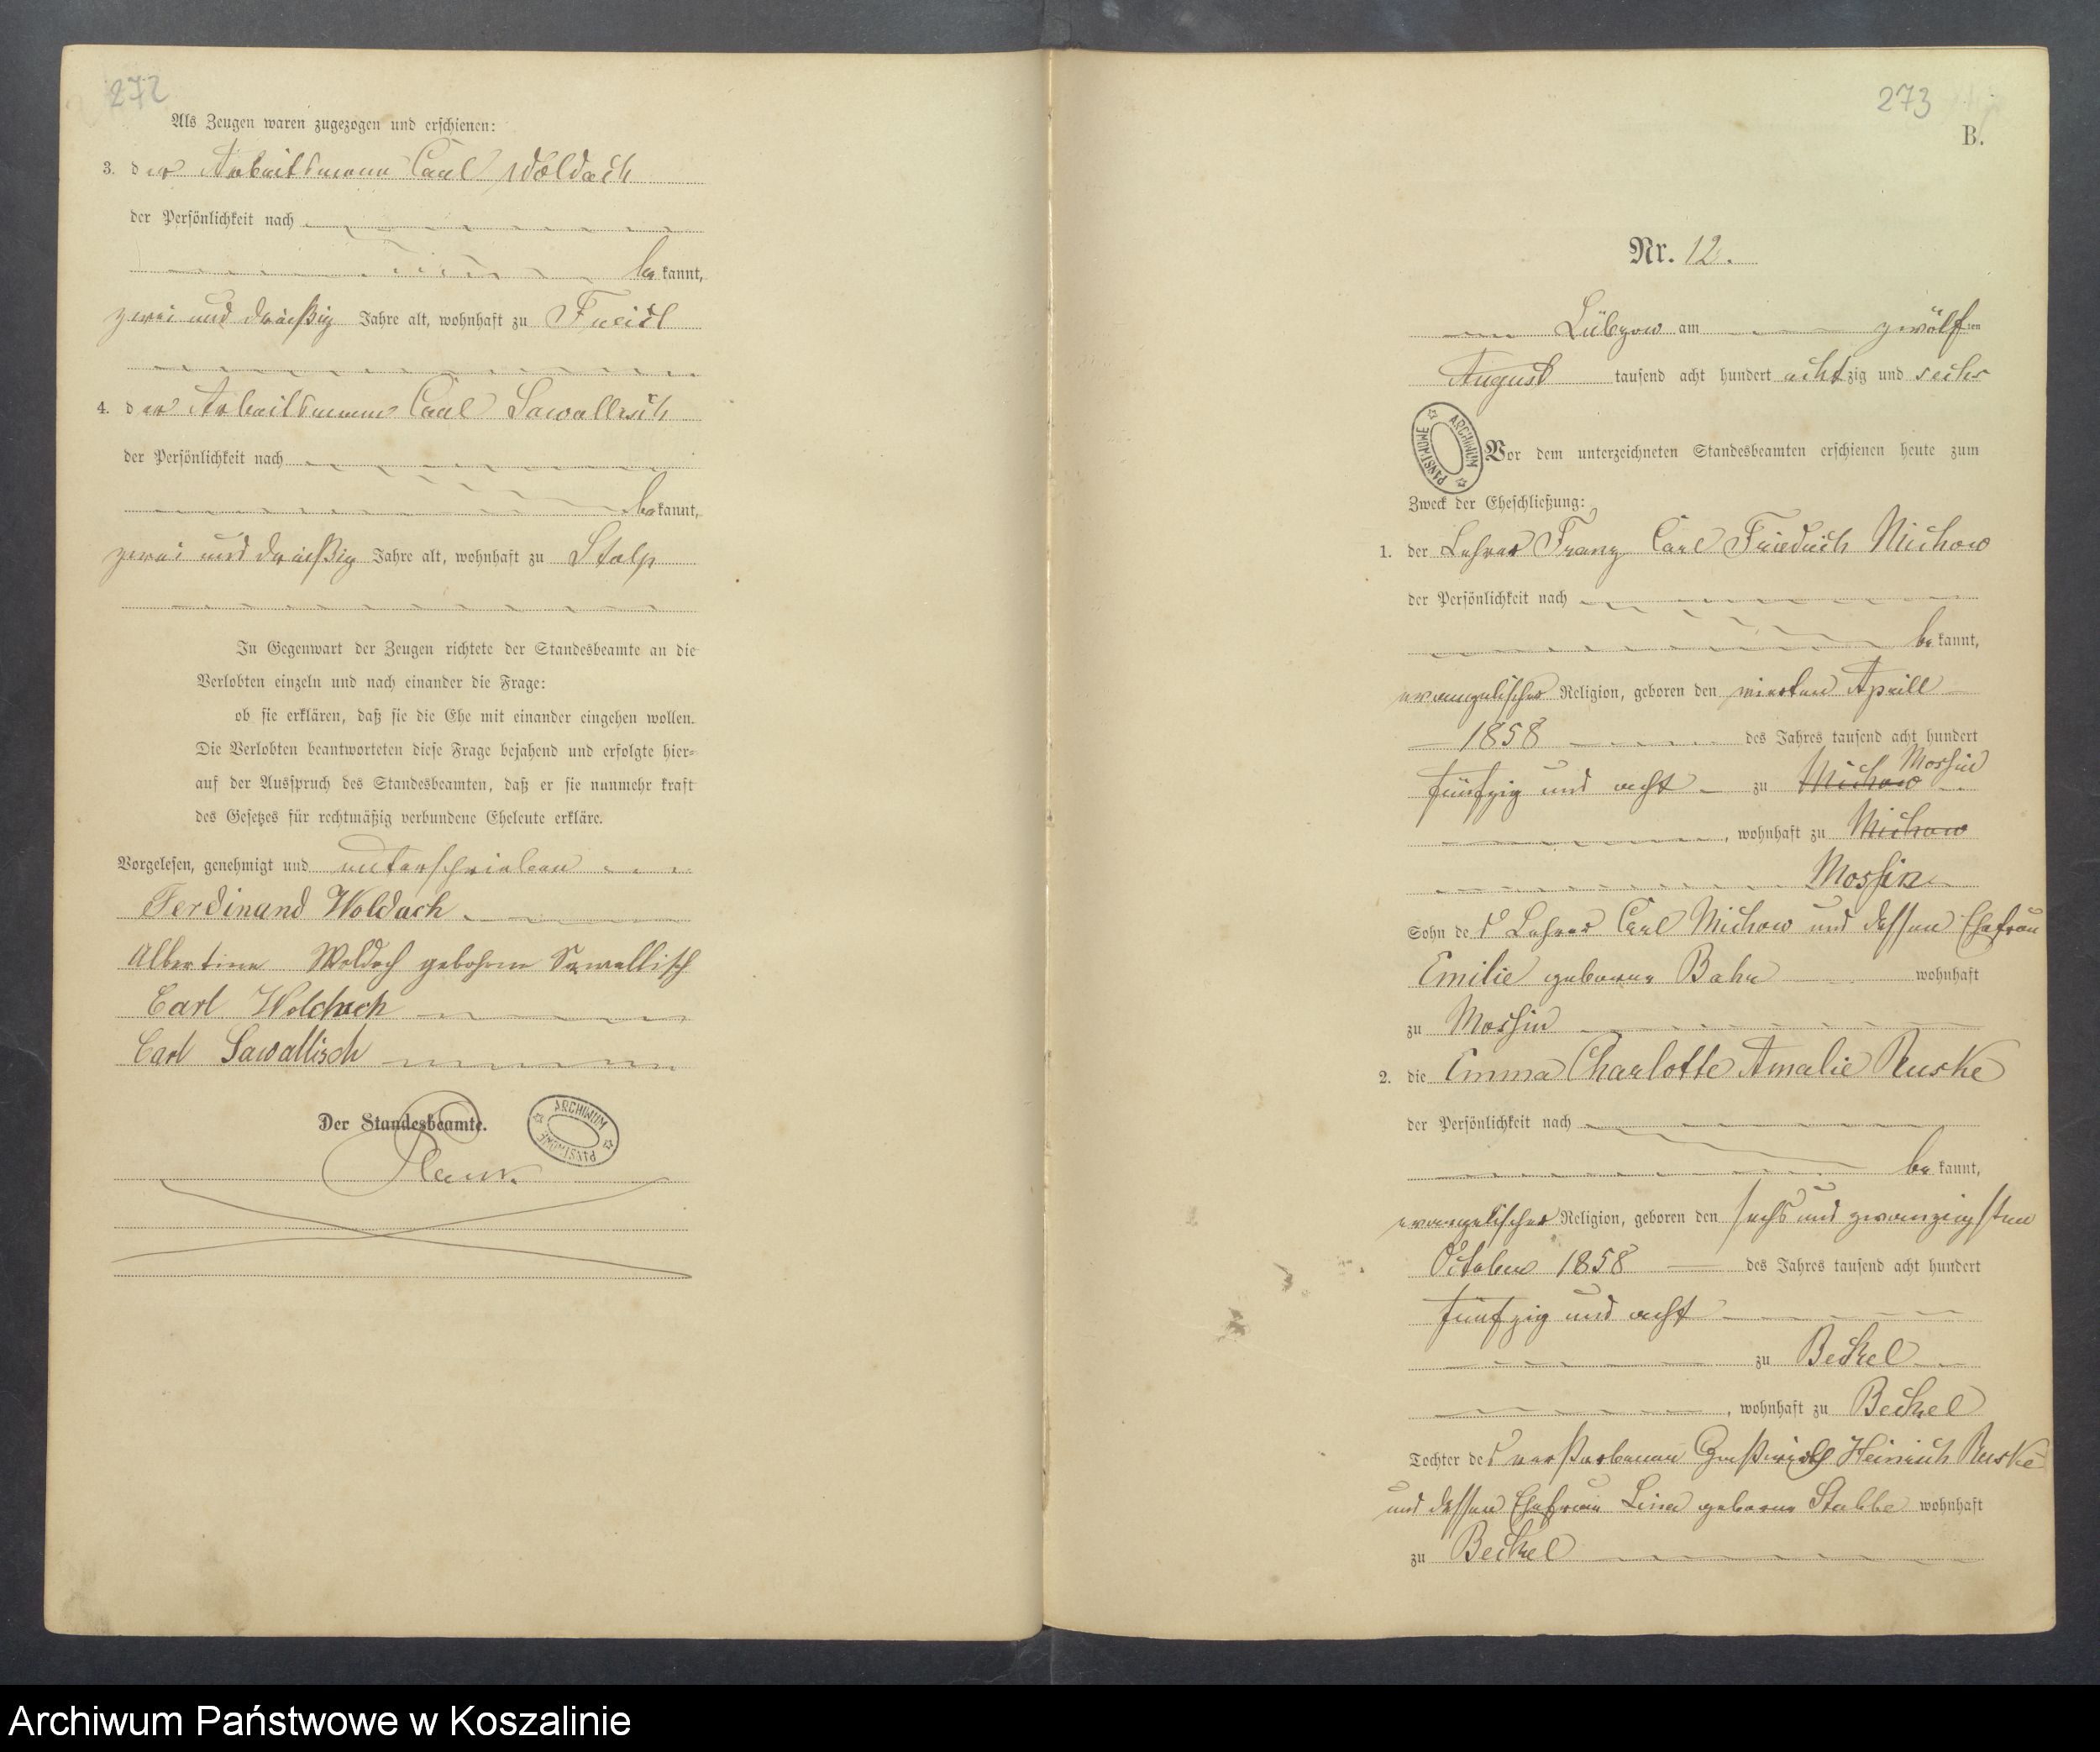 272
Als Zeugen waren zugezogen und erschienen:
3. der Arbeitsmann Carl Woldach
der Persönlichkeit nach
bekannt,
zwei und dreißig Jahre alt, wohnhaft zu
4. der Arbeitsmann Carl Sawallisch
der Persönlichkeit nach
bekannt,
zwei und dreißig Jahre alt, wohnhaft zu Stolp
In Gegenwart der Zeugen richtete der Standesbeamte an die
Verlobten einzeln und nach einander die Frage:
ob sie erklären, daß sie die Ehe mit einander eingehen wollen.
Die Verlobten beantworteten diese Frage bejahend und erfolgte hier-
auf der Ausspruch des Standesbeamten, daß er sie nunmehr kraft
des Gesetzes für rechtmäßig verbundene Eheleute erkläre.
Vorgelesen, genehmigt und unterschrieben
Ferdinand Woldach
Albertine Woldach geborne Sawallisch
Carl Woldach
Carl Sawallisch
Der Standesbeamte.
ARCHIWUM PAŃSTWOWE
273
B.
Nr. 12.
Lübzow am zwölften
August tausend acht hundert achtzig und sechs
ARCHIWUM PAŃSTWOWE
Vor dem unterzeichneten Standesbeamten erschienen heute zum
Zweck der Eheschließung:
1. der Lehrer Franz Carl Friedrich Michow
der Persönlichkeit nach
bekannt,
evangelischer Religion, geboren den vierten Aprill
1858 des Jahres tausend acht hundert
fünfzig und acht zu Michow Mossin
wohnhaft zu Michow
Mossin
Sohn des Lehrer Carl Michow und dessen Ehefrau
Emilie geborene Bahr wohnhaft
zu Mossin
2. die Emma Charlotte Amalie Ruske
der Persönlichkeit nach
bekannt,
evangelischer Religion, geboren den sechs und zwanzigsten
October 1858 des Jahres tausend acht hundert
fünfzig und acht
zu Beckel
wohnhaft zu Beckel
Tochter des verstorbenen Heinrich Ruske
und dessen Ehefrau Lina geborene Stubbe wohnhaft
zu Beckel
Archiwum Państwowe w Koszalinie